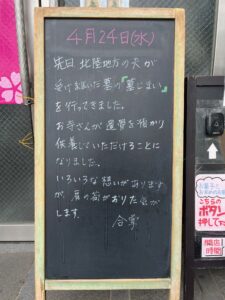 4月24日(水)
先日 北陸地方の夫が
受け継いだ墓の「墓じまい」
を行ってきました。
お寺さんが遺骨を預かり
供養していただけることに
なりました。
いろいろな想いがありますが、
肩の荷がおりた気が
します。 合掌
こちらの
ボタン
押して下
開店
時間